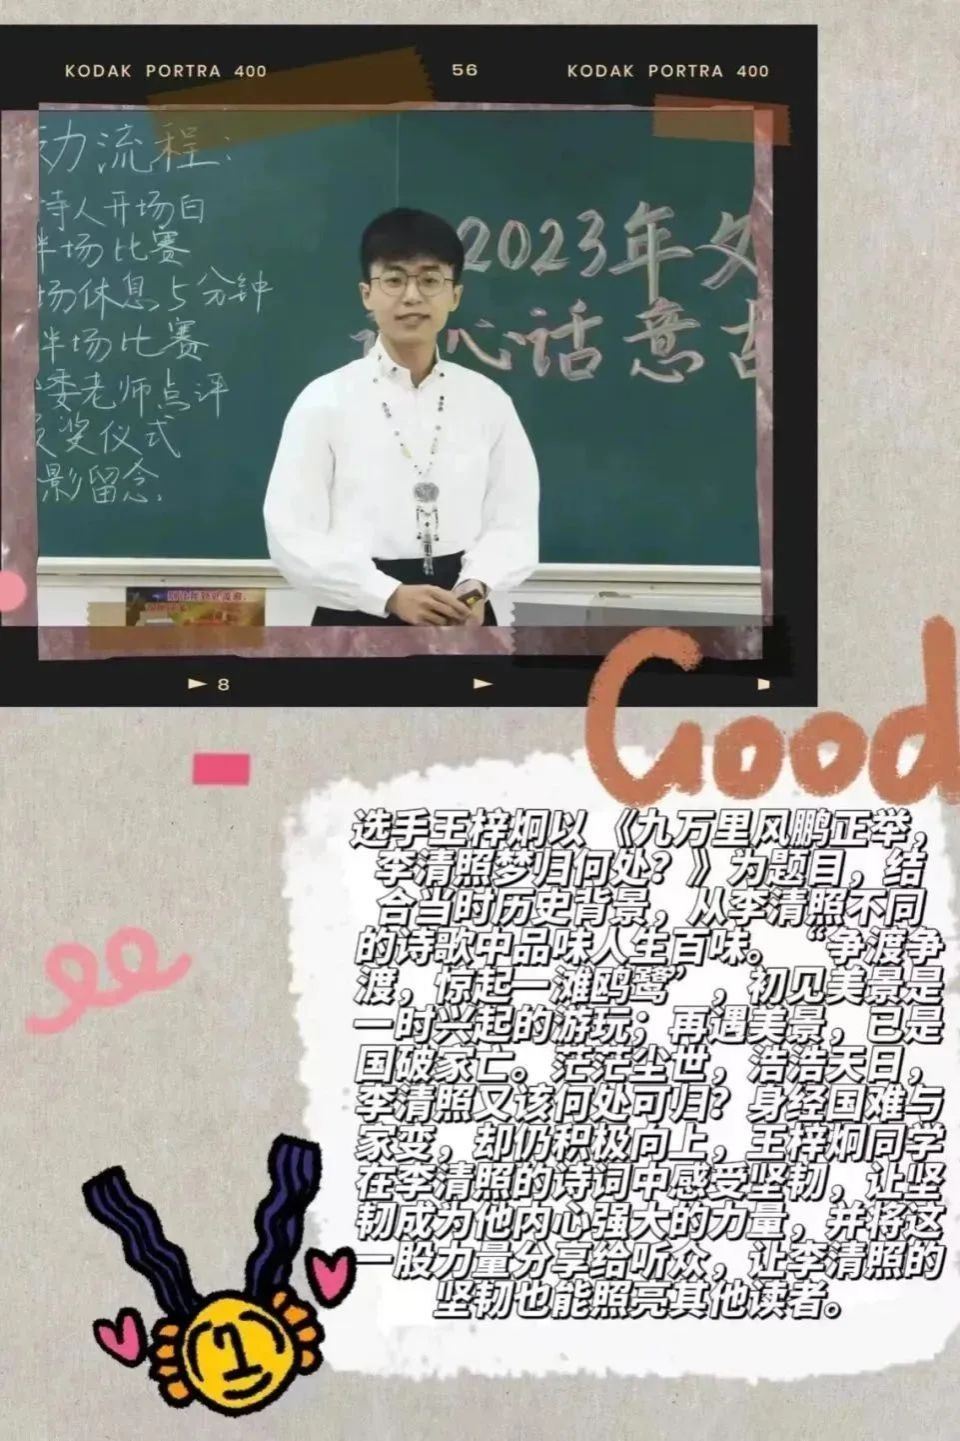 KODAK PORTRA 400
56
KODAK PORTRA 400
动流程:
诗人开场白
半场比赛
场休息5分钟
半场比赛
委老师点评
奖仪式
影留念.
2023年文
心话意古
8
Good
选手王梓炯以《九万里风鹏正举，
李清照梦归何处？》为题目，结
合当时历史背景，从李清照不同
的诗歌中品味人生百味。“争渡争
渡，惊起一滩鸥鹭”，初见美景是
一时兴起的游玩；再遇美景，已是
国破家亡。茫茫尘世，浩浩天日，
李清照又该何处可归？身经国难与
家变，却仍积极向上，王梓炯同学
在李清照的诗词中感受坚韧，让坚
韧成为他内心强大的力量，并将这
一股力量分享给听众，让李清照的
坚韧也能照亮其他读者。
1